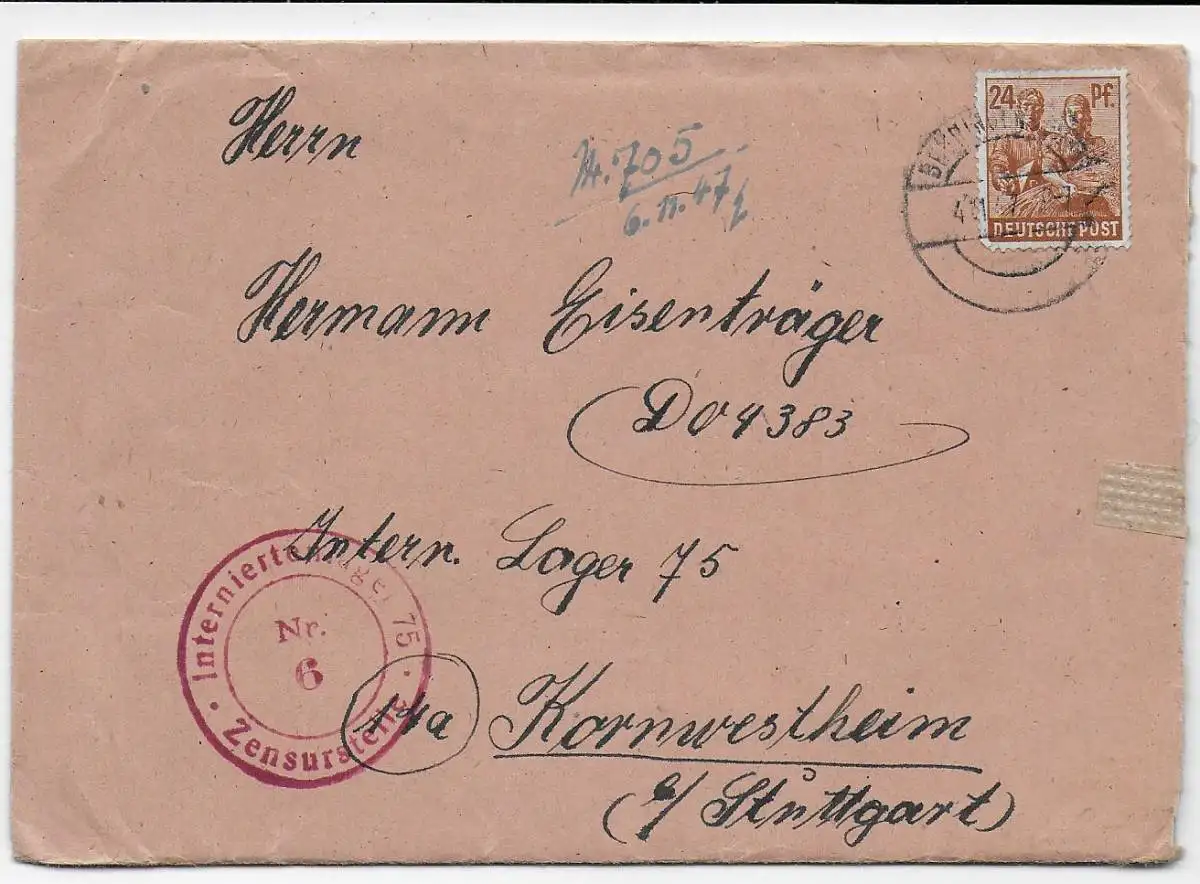 Herrn
Nr. 705
6.11.47
24 Pf.
DEUTSCHE POST
Hermann Eisenträger
D04383
Intern. Lager 75
Internierten Lager 75
Nr.
6
Zensurstelle
14a Kornwestheim
(b/ Stuttgart)